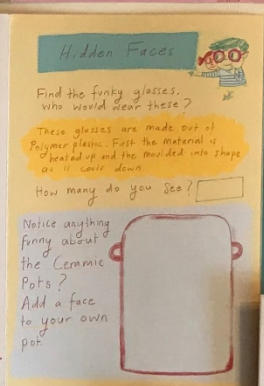 Hidden Faces
Find the funky glasses.
who would wear these?
These glasses are made out of
Polymer plastic. First the material is
heated up and the moulded into shape
as it cools down.
How many do you see?
Notice anything
funny about
the Ceramic
Pots?
Add a face
to your own
pot.